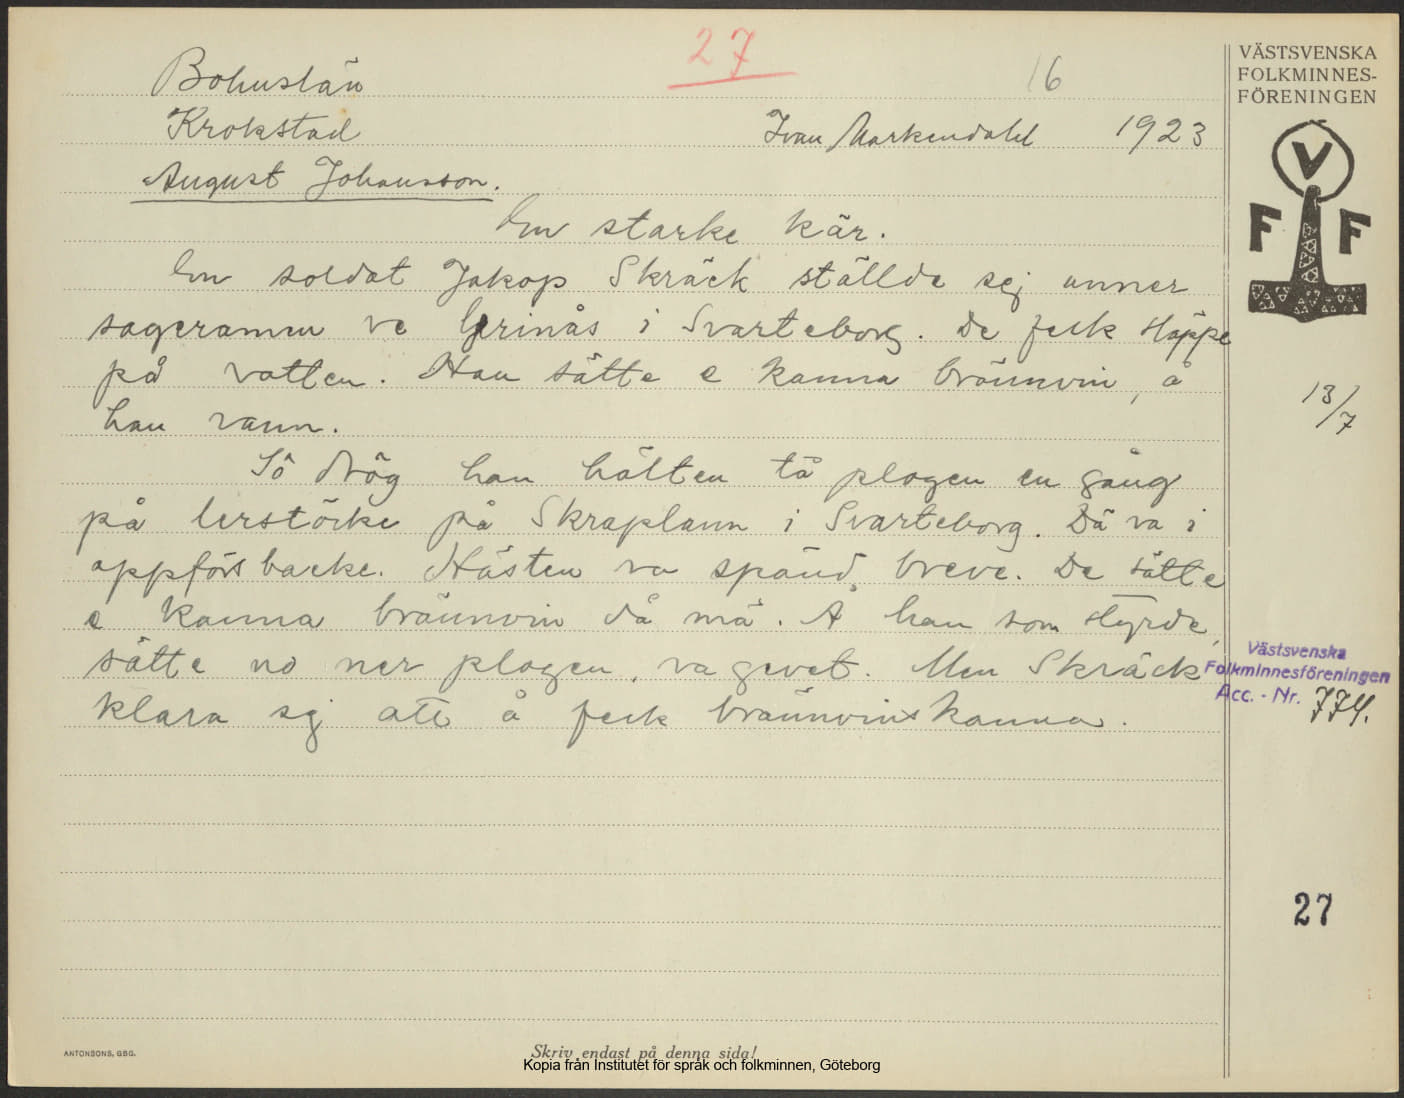 27
16
Bohuslän
Krokstad
Ivan Markendahl 1923
August Johansson.
En starke kär.
En soldat Jakop Skräck ställde sej unner
sageramen ve Grinås i Svarteborg. De feck släppe
på vatten. Han sätte e kanna brännvin, å
han vann.
Så drög han hälten tå plogen en gång
på lerstörke på Skraplann i Svarteborg. Dä va i
oppförsbacke. Hästen va spänd breve. De sätte
e kanna brännvin då mä. Å han som styrde,
sätte no ner plogen, va gevet. Men Skräck
klara sej att å feck brännvinskanna.
VÄSTSVENSKA
FOLKMINNES-
FÖRENINGEN
V
F F
13/7
Västsvenska
Folkminnesföreningen
Acc. - Nr. 774.
27
ANTONSONS, GBG.
Skriv endast på denna sida!
Kopia från Institutet för språk och folkminnen, Göteborg